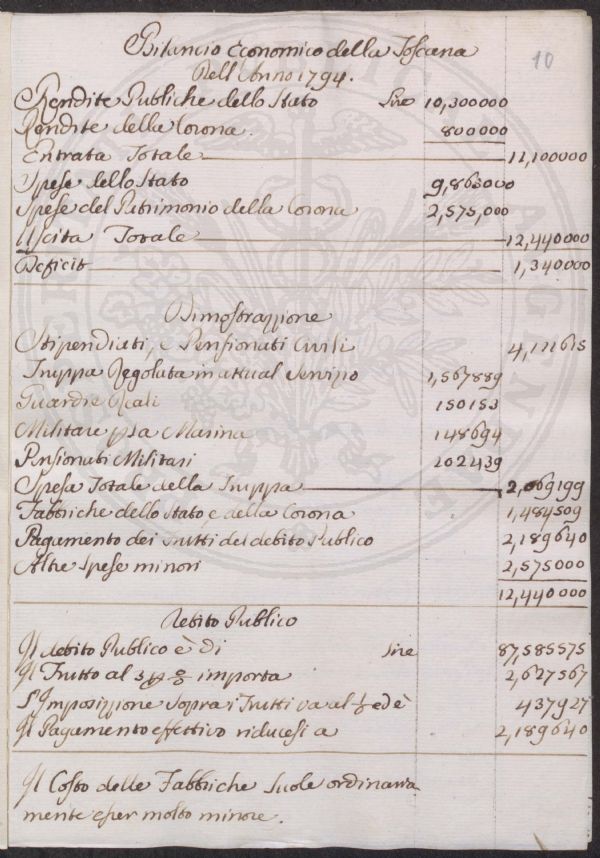 10
Bilancio Economico della Toscana
Dell'Anno 1794.
Rendite Publiche dello Stato Lire 10,300000
Rendite della Corona. 800000
Entrata Totale 11,100000
Spese dello Stato 9,865000
Spese del Patrimonio della Corona 2,575,000
Uscita Totale 12,440000
Deficit 1,340000
Dimostrazione
Stipendiati, e Pensionati Civili 4,111615
Truppa Regolata in attual Servizio 1,567889
Guardie Reali 150153
Militare p la Marina 148694
Pensionati Militari 202439
Spesa Totale della Truppa 2,069199
Fabbriche dello Stato, e della Corona 1,484509
Pagamento dei Frutti del debito Publico 2,189640
Altre Spese minori 2,575000
12,440000
Debito Publico
Il debito Publico è di Lire 87,585575
Il Frutto al 3 p % importa 2,627567
L'Imposizione sopra i Frutti va al 1/6 ed è 437927
Il Pagamento effettivo riducesi a 2,189640
Il Costo delle Fabbriche Suole ordinaria
mente esser molto minore.